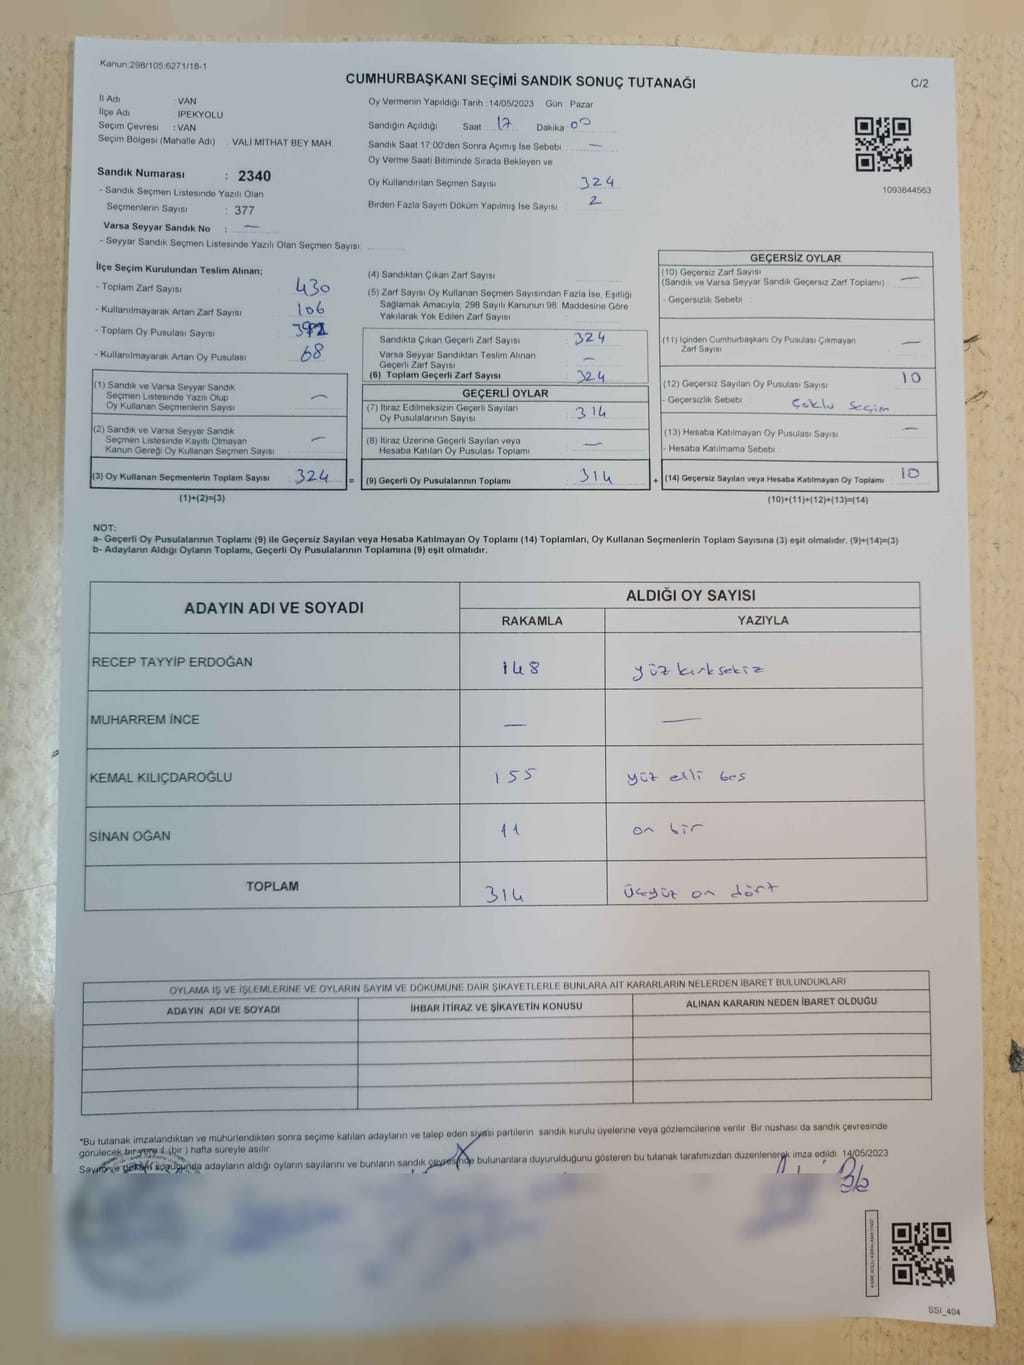 Kanun:298/105 6271/18-1
CUMHURBAŞKANI SEÇİMİ SANDIK SONUÇ TUTANAĞI
C/2
İl Adı : VAN
İlçe Adı : İPEKYOLU
Seçim Çevresi : VAN
Seçim Bölgesi (Mahalle Adı) : VALİ MİTHAT BEY MAH.
Sandık Numarası : 2340
- Sandık Seçmen Listesinde Yazılı Olan
Seçmenlerin Sayısı : 377
Varsa Seyyar Sandık No : —
- Seyyar Sandık Seçmen Listesinde Yazılı Olan Seçmen Sayısı:
Oy Vermenin Yapıldığı Tarih :14/05/2023 Gün Pazar
Sandığın Açıldığı Saat 17 Dakika 00
Sandık Saat 17:00'den Sonra Açımış İse Sebebi —
Oy Verme Saati Bitiminde Sırada Bekleyen ve
Oy Kullandırılan Seçmen Sayısı 324
Birden Fazla Sayım Döküm Yapılmış İse Sayısı 2
1093844563
İlçe Seçim Kurulundan Teslim Alınan;
- Toplam Zarf Sayısı 430
- Kullanılmayarak Artan Zarf Sayısı 106
- Toplam Oy Pusulası Sayısı
- Kullanılmayarak Artan Oy Pusulası 68
(1) Sandık ve Varsa Seyyar Sandık
Seçmen Listesinde Yazılı Olup
Oy Kullanan Seçmenlerin Sayısı —
(2) Sandık ve Varsa Seyyar Sandık
Seçmen Listesinde Kayıtlı Olmayan
Kanun Gereği Oy Kullanan Seçmen Sayısı —
(3) Oy Kullanan Seçmenlerin Toplam Sayısı 324 =
(1)+(2)=(3)
(4) Sandıktan Çıkan Zarf Sayısı
(5) Zarf Sayısı Oy Kullanan Seçmen Sayısından Fazla İse, Eşitliği
Sağlamak Amacıyla, 298 Sayılı Kanunun 98. Maddesine Göre
Yakılarak Yok Edilen Zarf Sayısı
Sandıkta Çıkan Geçerli Zarf Sayısı 324
Varsa Seyyar Sandıktan Teslim Alınan
Geçerli Zarf Sayısı —
(6) Toplam Geçerli Zarf Sayısı 324
GEÇERLİ OYLAR
(7) İtiraz Edilmeksizin Geçerli Sayılan
Oy Pusulalarının Sayısı 314
(8) İtiraz Üzerine Geçerli Sayılan veya
Hesaba Katılan Oy Pusulası Toplamı —
(9) Geçerli Oy Pusulalarının Toplamı 314 +
GEÇERSİZ OYLAR
(10) Geçersiz Zarf Sayısı
(Sandık ve Varsa Seyyar Sandık Geçersiz Zarf Toplamı) —
- Geçersizlik Sebebi
(11) İçinden Cumhurbaşkanı Oy Pusulası Çıkmayan
Zarf Sayısı —
(12) Geçersiz Sayılan Oy Pusulası Sayısı 10
- Geçersizlik Sebebi Çoklu seçim
(13) Hesaba Katılmayan Oy Pusulası Sayısı —
- Hesaba Katılmama Sebebi
(14) Geçersiz Sayılan veya Hesaba Katılmayan Oy Toplamı 10
(10)+(11)+(12)+(13)=(14)
NOT:
a- Geçerli Oy Pusulalarının Toplamı (9) ile Geçersiz Sayılan veya Hesaba Katılmayan Oy Toplamı (14) Toplamları, Oy Kullanan Seçmenlerin Toplam Sayısına (3) eşit olmalıdır. (9)+(14)=(3)
b- Adayların Aldığı Oyların Toplamı, Geçerli Oy Pusulalarının Toplamına (9) eşit olmalıdır.
ADAYIN ADI VE SOYADI
ALDIĞI OY SAYISI
RAKAMLA YAZIYLA
RECEP TAYYİP ERDOĞAN 148 yüz kırk sekiz
MUHARREM İNCE — —
KEMAL KILIÇDAROĞLU 155 yüz elli beş
SİNAN OĞAN 11 on bir
TOPLAM 314 üçyüz on dört
OYLAMA İŞ VE İŞLEMLERİNE VE OYLARIN SAYIM VE DÖKÜMÜNE DAİR ŞİKAYETLERLE BUNLARA AİT KARARLARIN NELERDEN İBARET BULUNDUKLARI
ADAYIN ADI VE SOYADI İHBAR İTİRAZ VE ŞİKAYETİN KONUSU ALINAN KARARIN NEDEN İBARET OLDUĞU
*Bu tutanak imzalandıktan ve mühürlendikten sonra seçime katılan adayların ve talep eden siyasi partilerin sandık kurulu üyelerine veya gözlemcilerine verilir. Bir nüshası da sandık çevresinde
görülecek bir yere 1 (bir ) hafta süreyle asılır.
Sayım ve döküm sonucunda adayların aldığı oyların sayılarını ve bunların sandık çevresinde bulunanlara duyurulduğunu gösteren bu tutanak tarafımızdan düzenlenerek imza edildi. 14/05/2023
SSI_404